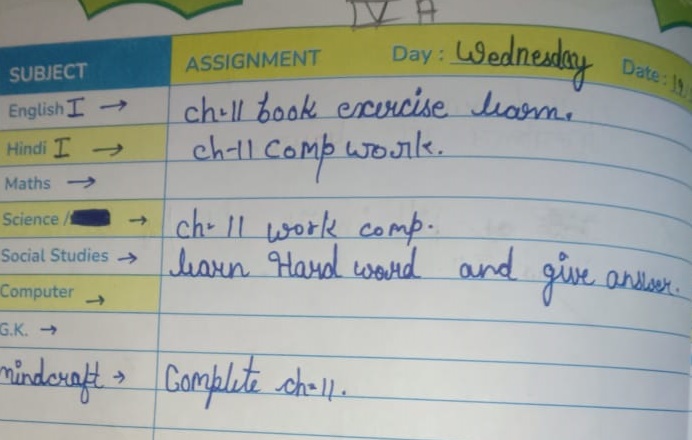 IV A
SUBJECT ASSIGNMENT Day: Wednesday Date:
English I → ch-11 book exercise learn.
Hindi I → ch-11 comp work.
Maths →
Science / → ch-11 work comp.
Social Studies → learn Hard word and give answer.
Computer →
G.K. →
mindcraft → Complete ch-11.